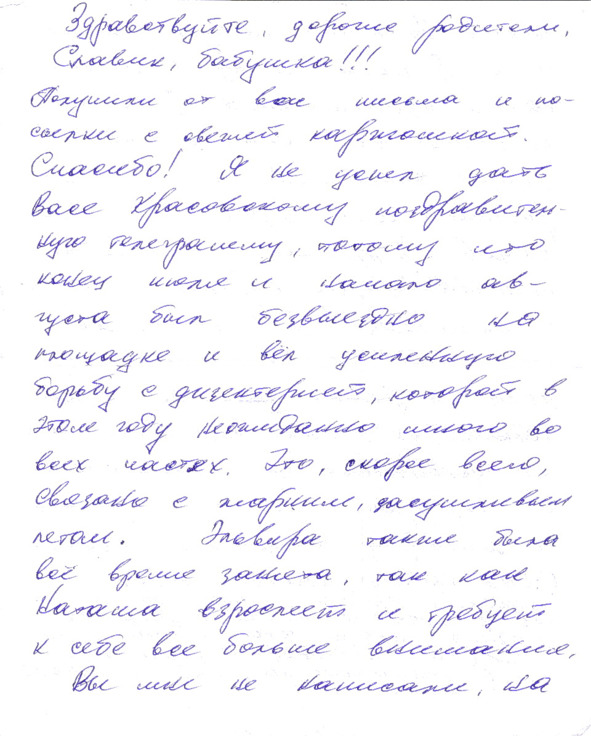 Здравствуйте, дорогие родители,
Славик, бабушка!!!
Получили от вас письма и по-
сылки с свежей картошкой.
Спасибо! Я не успел дать
Васе Красовскому поздравитель-
ную телеграмму, потому что
конец июля и начало ав-
густа был безвыездно на
площадке и вёл усиленную
борьбу с дизентерией, которой в
этом году неожиданно много во
всех частях. Это, скорее всего,
связано с жарким, засушливым
летом. Эльвира также была
всё время занята, так как
Наташа взрослеет и требует
к себе все больше внимания.
Вы мне не написали, на